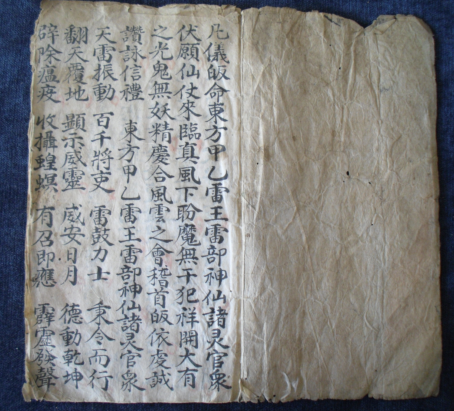 凢儀皈命東方甲乙雷王雷部神仙諸灵官衆
伏願仙仗來臨真風下盼魔無干犯祥開大有
之光鬼無妖精慶合風雲之會稽首皈依虔誠
讚詠信禮 東方甲乙雷王雷部神仙諸灵官衆
天雷振動 百千將吏 雷鼓力士 秉令而行
翻天覆地 顯示威靈 安日月 德動乾坤
除瘟疫 收攝蝗螟 有召即應 霹靂發聲